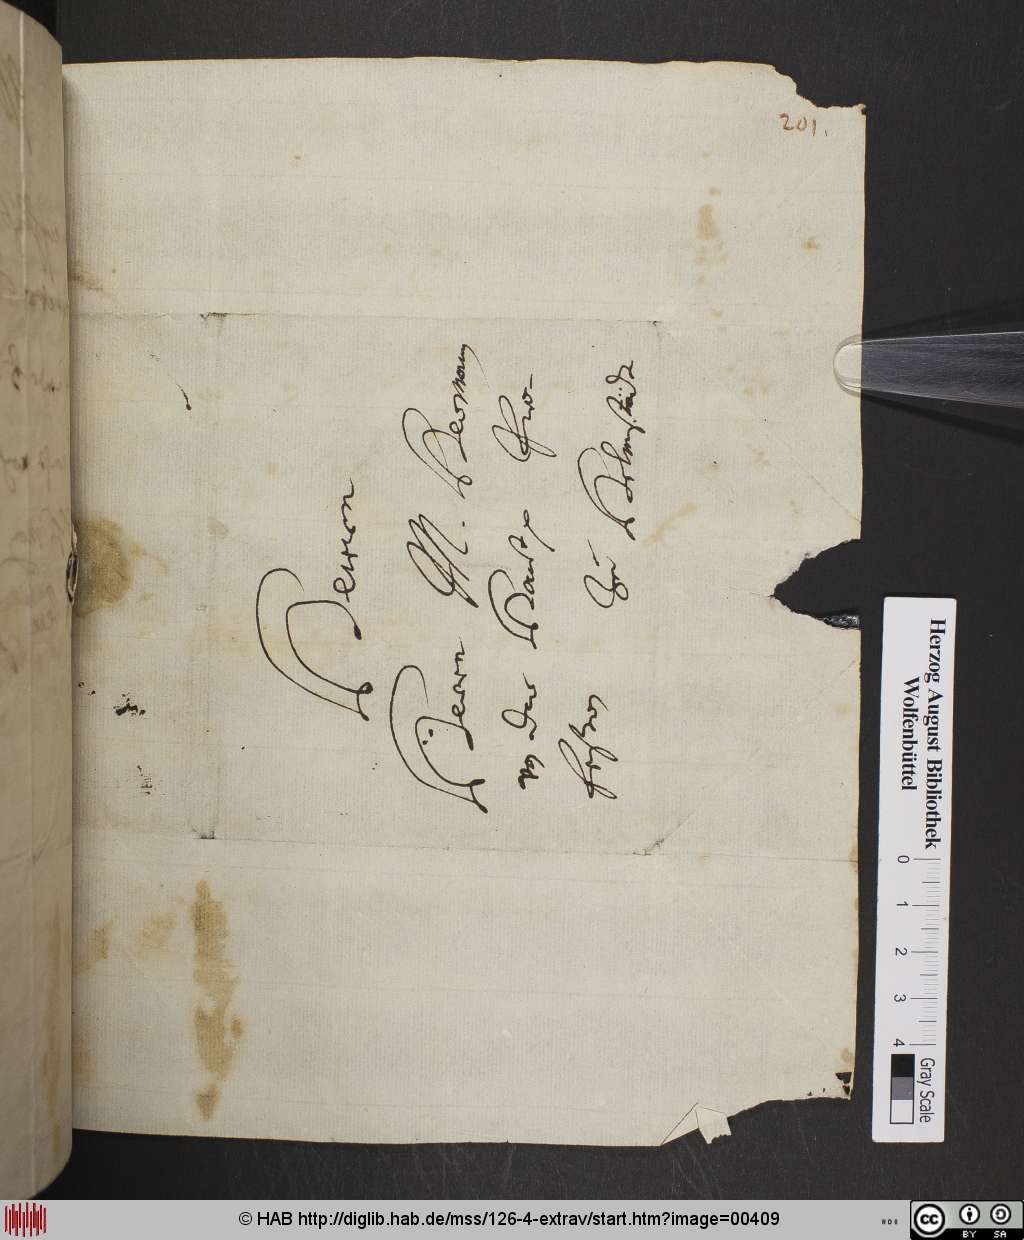 201.
Herren
Herrn M. Herman
von der Hardt Pro-
feßor
Zu Helmstädt
Herzog August Bibliothek
Wolfenbüttel
0 1 2 3 4
Gray Scale
© HAB http://diglib.hab.de/mss/126-4-extrav/start.htm?image=00409
cc BY SA